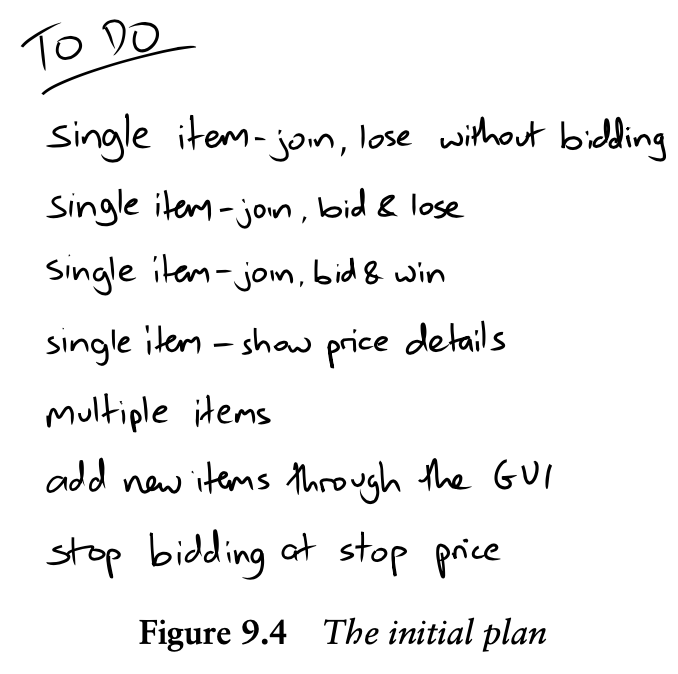 TO DO
Single item-join, lose without bidding
Single item-join, bid & lose
Single item-join, bid & win
single item – show price details
multiple items
add new items through the GUI
stop bidding at stop price
Figure 9.4 The initial plan